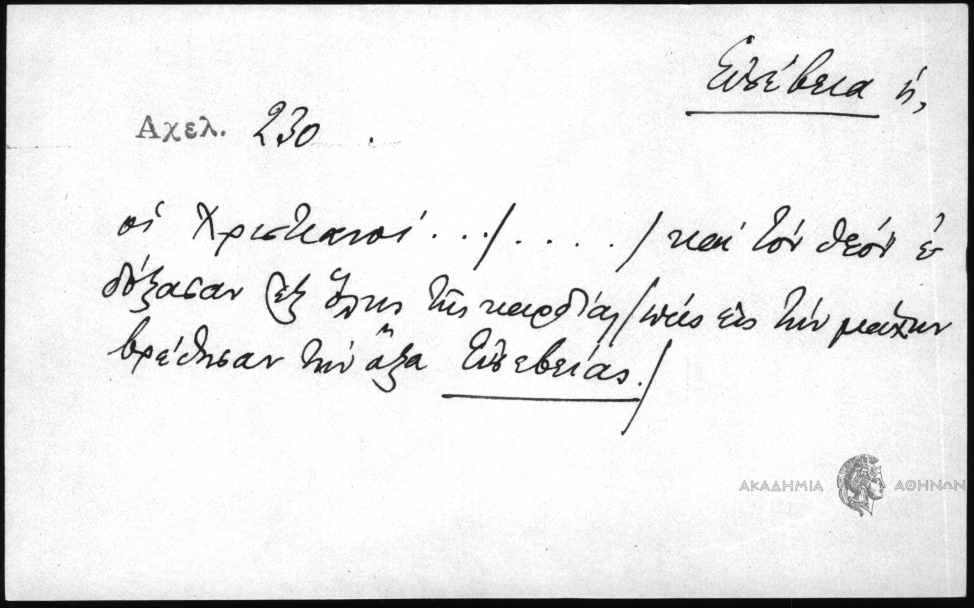 Εὐσέβεια ἡ,
Αχελ. 230.
οἱ Χριστιανοί.../..../καί τόν θεόν ἐ
δόξασαν ἐξ ὅλης τῆς καρδίας/πῶς εἰς τήν μάχην
βρέθησαν τήν ἄξα Εὐσεβείας./
ΑΚΑΔΗΜΙΑ ΑΘΗΝΩΝ